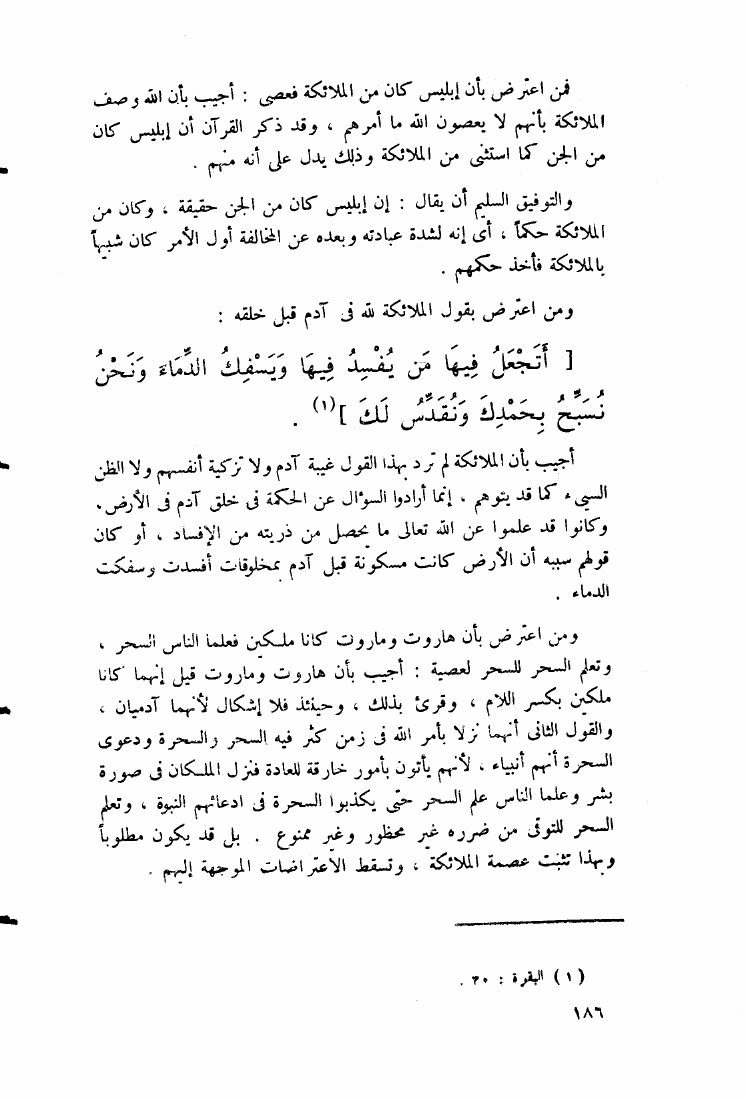 فمن اعترض بأن إبليس كان من الملائكة فعصى : أجيب بأن الله وصف
الملائكة بأنهم لا يعصون الله ما أمرهم ، وقد ذكر القرآن أن إبليس كان
من الجن كما استثنى من الملائكة وذلك يدل على أنه منهم .
والتوفيق السليم أن يقال : إن إبليس كان من الجن حقيقة ، وكان من
الملائكة حكماً ، أى إنه لشدة عبادته وبعده عن المخالفة أول الأمر كان شبيهاً
بالملائكة فأخذ حكمهم .
ومن اعترض بقول الملائكة لله فى آدم قبل خلقه :
[ أَتَجْعَلُ فِيهَا مَن يُفْسِدُ فِيهَا وَيَسْفِكُ الدِّمَاءَ وَنَحْنُ
نُسَبِّحُ بِحَمْدِكَ وَنُقَدِّسُ لَكَ ](١) .
أجيب بأن الملائكة لم ترد بهذا القول غيبة آدم ولا تزكية أنفسهم ولا الظن
السيىء كما قد يتوهم ، إنما أرادوا السؤال عن الحكمة فى خلق آدم فى الأرض .
وكانوا قد علموا عن الله تعالى ما يحصل من ذريته من الإفساد ، أو كان
قولهم سببه أن الأرض كانت مسكونة قبل آدم بمخلوقات أفسدت وسفكت
الدماء .
ومن اعترض بأن هاروت وماروت كانا ملكين فعلما الناس السحر ،
وتعلم السحر للسحر لعصية : أجيب بأن هاروت وماروت قيل إنهما كانا
ملكين بكسر اللام ، وقرئ بذلك ، وحينئذ فلا إشكال لأنهما آدميان ،
والقول الثانى أنهما نزلا بأمر الله فى زمن كثر فيه السحر والسحرة ودعوى
السحرة أنهم أنبياء ، لأنهم يأتون بأمور خارقة للعادة فنزل الملكان فى صورة
بشر وعلما الناس علم السحر حتى يكذبوا السحرة فى ادعائهم النبوة ، وتعلم
السحر للتوقى من ضرره غير محظور وغير ممنوع . بل قد يكون مطلوباً
وبهذا تثبت عصمة الملائكة ، وتسقط الاعتراضات الموجهة إليهم .
(١) البقرة : ٣٠ .
١٨٦